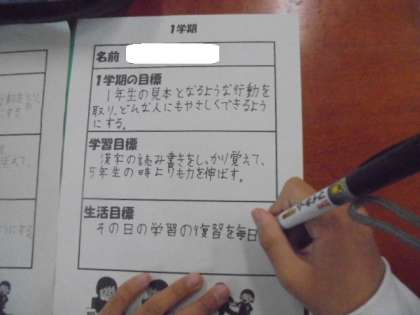 1学期
名前
1学期の目標
1年生の見本となるような行動を
取り、どんな人にもやさしくできるよう
にする。
学習目標
漢字の読み書きをしっかり覚えて、
5年生の時よりも力を伸ばす。
生活目標
その日の学習の復習を毎日